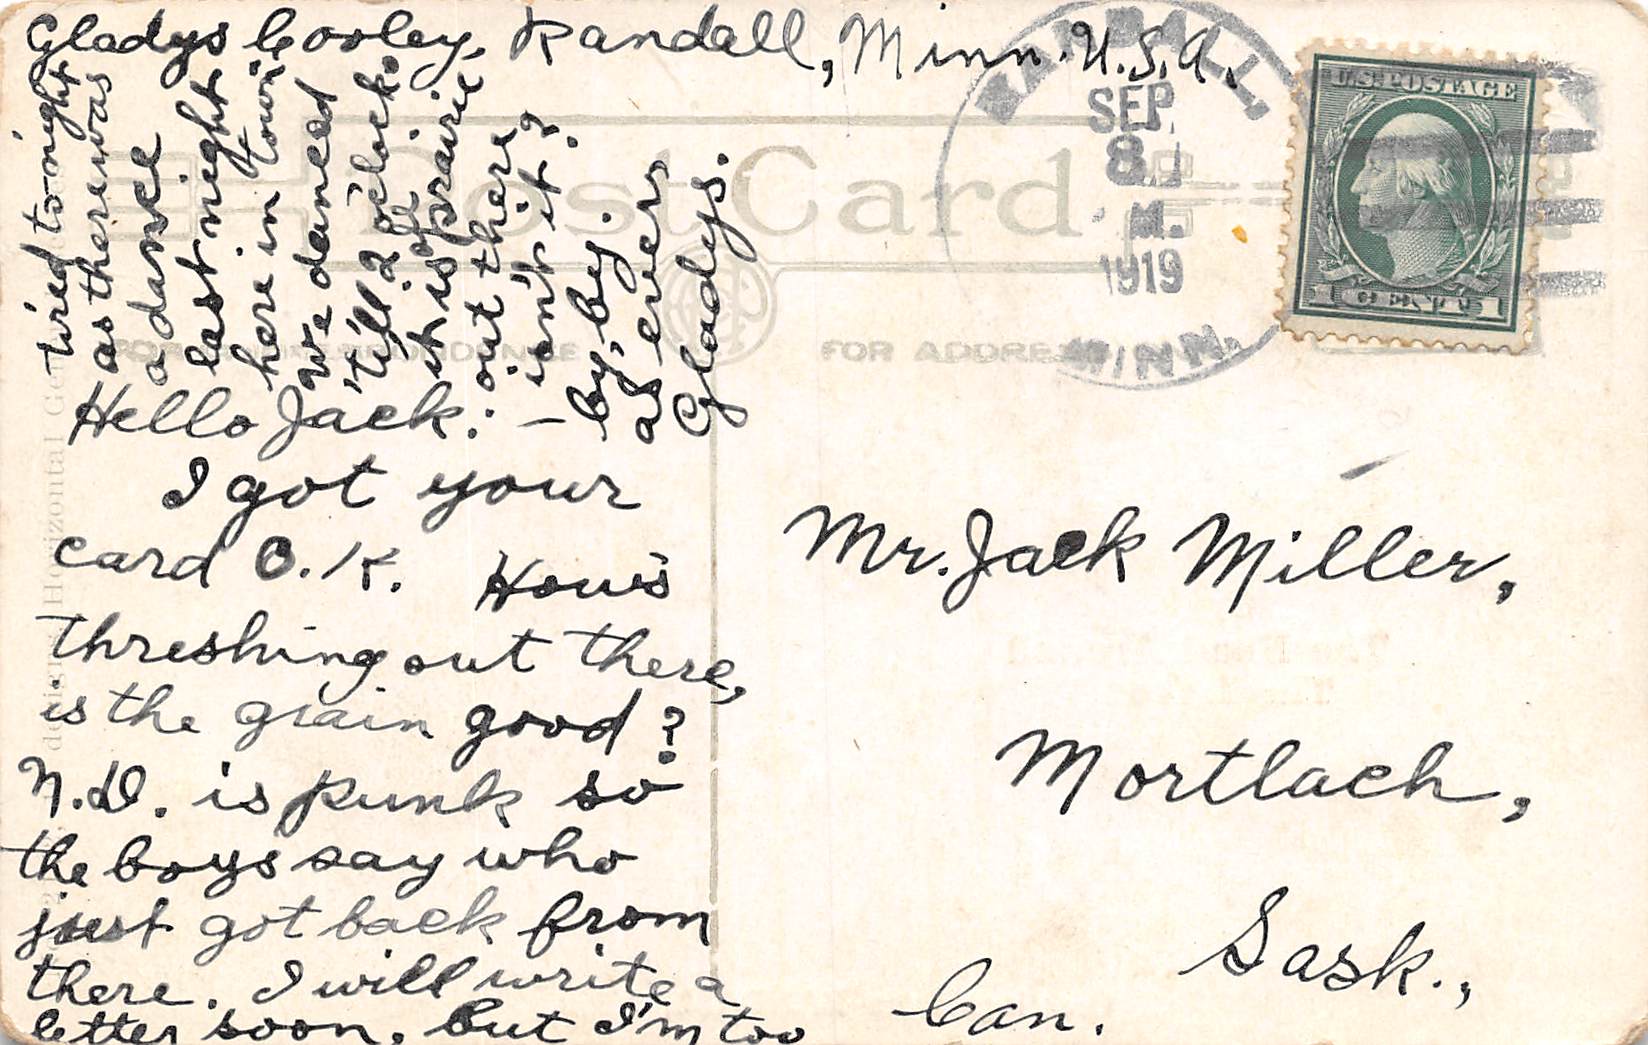 Gladys Cooley, Randall, Minn. U.S.A.
Post Card
FOR CORRESPONDENCE
FOR ADDRESS ONLY
RANDALL,
SEP
8
M.
1919
MINN.
U.S. POSTAGE
1 CENT 1
Hello Jack: —
I got your
card O.K. How's
threshing out there,
is the grain good?
N.D. is punk so
the boys say who
just got back from
there. I will write a
letter soon, but I'm too
tired to-night
as there was
a dance
last night
here in town
We danced
'till 2 o'clock.
it is all prairie
out there
isn't it?
by, by.
as ever
Gladys.
Mr. Jack Miller,
Mortlach,
Sask.,
Can.